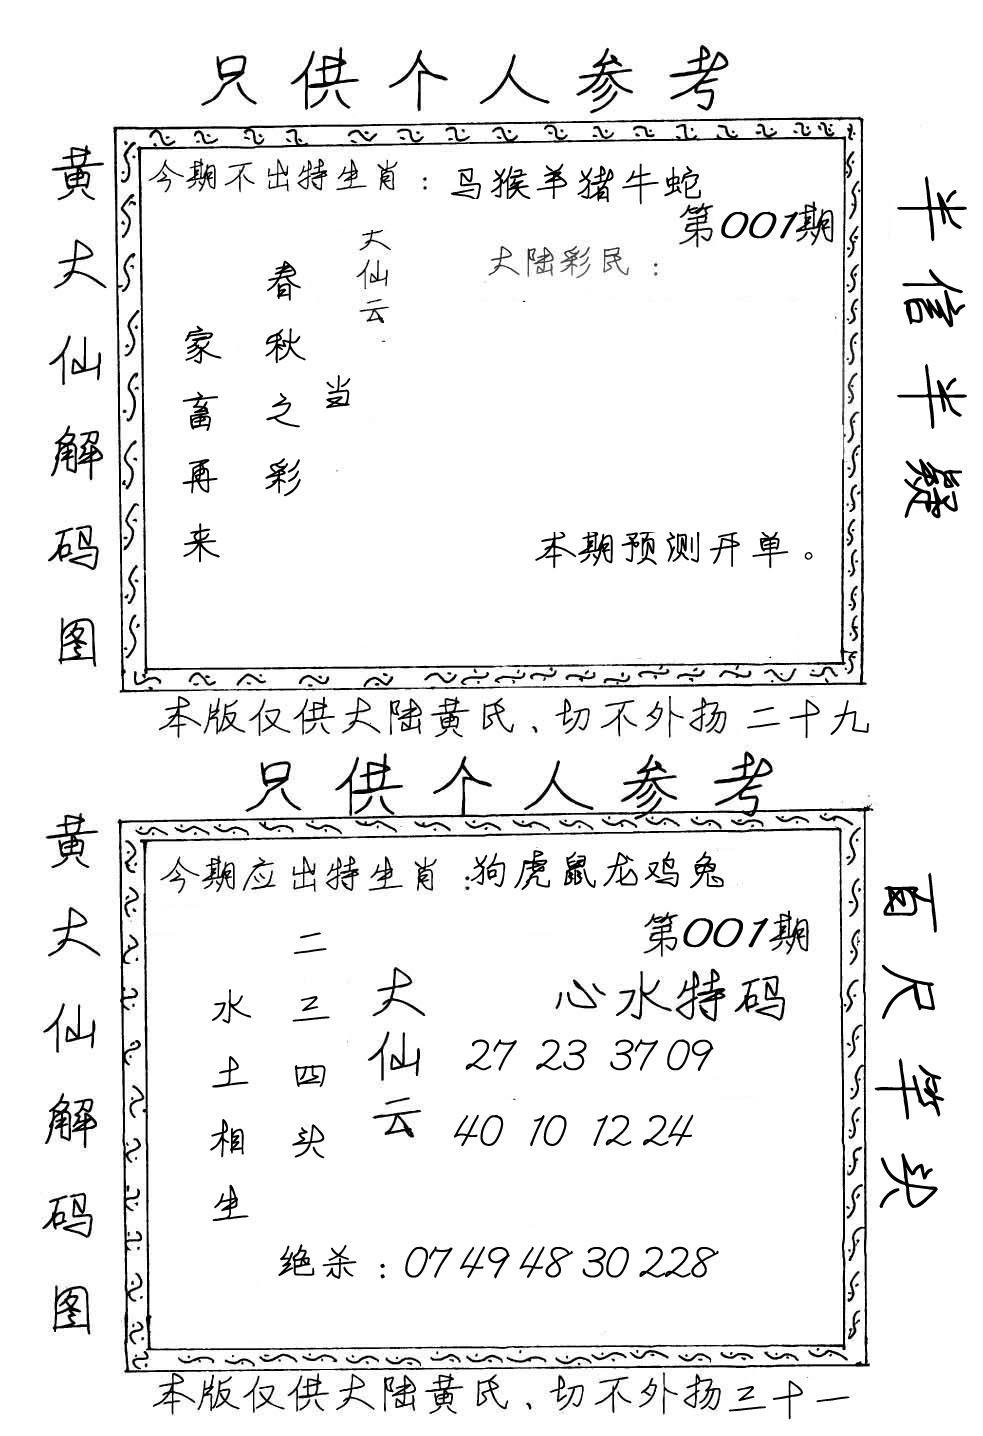 只供个人参考
黄大仙解码图
今期不出特生肖：马猴羊猪牛蛇
第001期
大仙云
大陆彩民：
春秋之彩
家畜再来
当
本期预测开单。
半信半疑
本版仅供大陆黄氏、切不外扬二十九
只供个人参考
黄大仙解码图
今期应出特生肖：狗虎鼠龙鸡兔
第001期
大仙云
二三四头
水土相生
心水特码
27 23 37 09
40 10 12 24
绝杀：07 49 48 30 228
百尺竿头
本版仅供大陆黄氏、切不外扬三十一